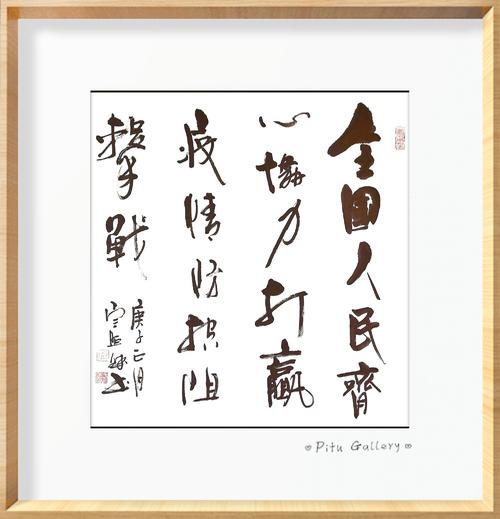 全國人民齊
心協力打贏
疫情防控阻
擊戰
庚子正月
书
Pitu Gallery